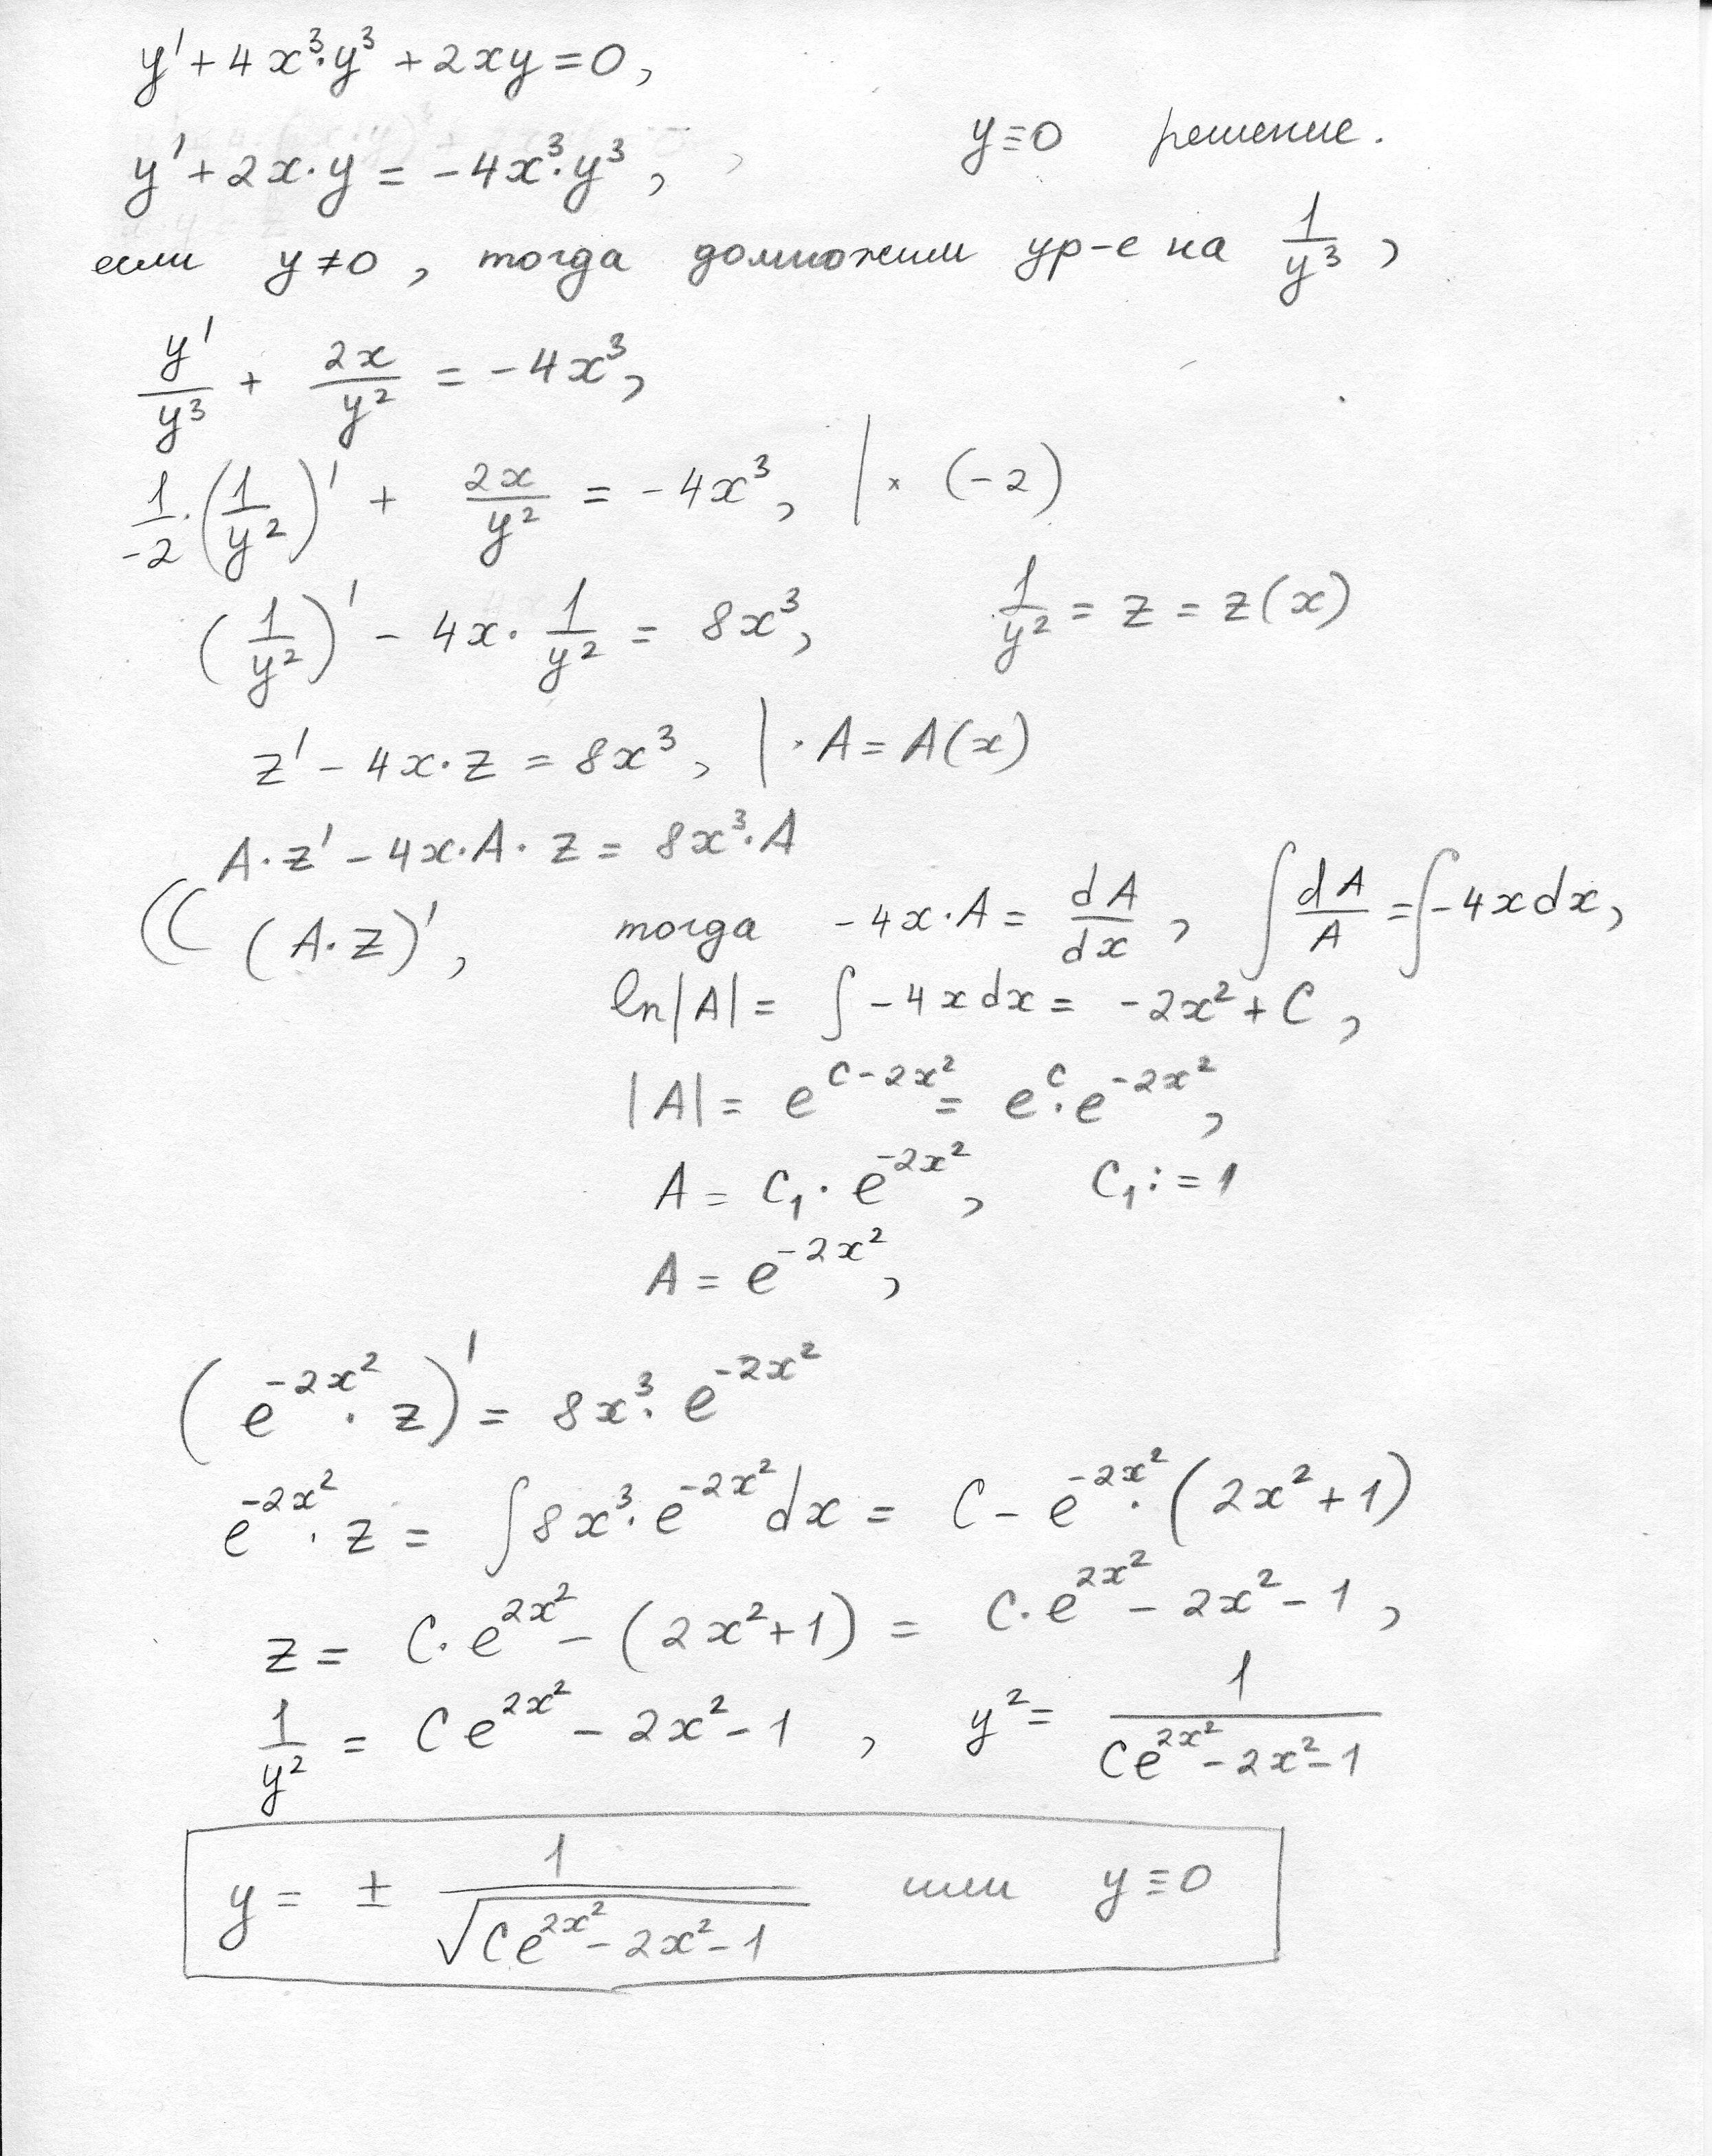 y' + 4x³·y³ + 2xy = 0,
y' + 2x·y = -4x³·y³, y≡0 решение.
если y≠0, тогда домножим ур-е на 1/y³,
y'/y³ + 2x/y² = -4x³,
1/-2·(1/y²)' + 2x/y² = -4x³, | × (-2)
(1/y²)' - 4x·1/y² = 8x³, 1/y² = z = z(x)
z' - 4x·z = 8x³, | · A = A(x)
A·z' - 4x·A·z = 8x³·A
(( (A·z)', тогда -4x·A = dA/dx, ∫ dA/A = ∫ -4x dx,
ln|A| = ∫ -4x dx = -2x² + C,
|A| = e^(C-2x²) = e^C · e^(-2x²),
A = C₁ · e^(-2x²), C₁ := 1
A = e^(-2x²),
(e^(-2x²) · z)' = 8x³ · e^(-2x²)
e^(-2x²) · z = ∫ 8x³ · e^(-2x²) dx = C - e^(-2x²) · (2x² + 1)
z = C · e^(2x²) - (2x² + 1) = C · e^(2x²) - 2x² - 1,
1/y² = C e^(2x²) - 2x² - 1, y² = 1/(C e^(2x²) - 2x² - 1)
y = ± 1/√(C e^(2x²) - 2x² - 1) или y≡0